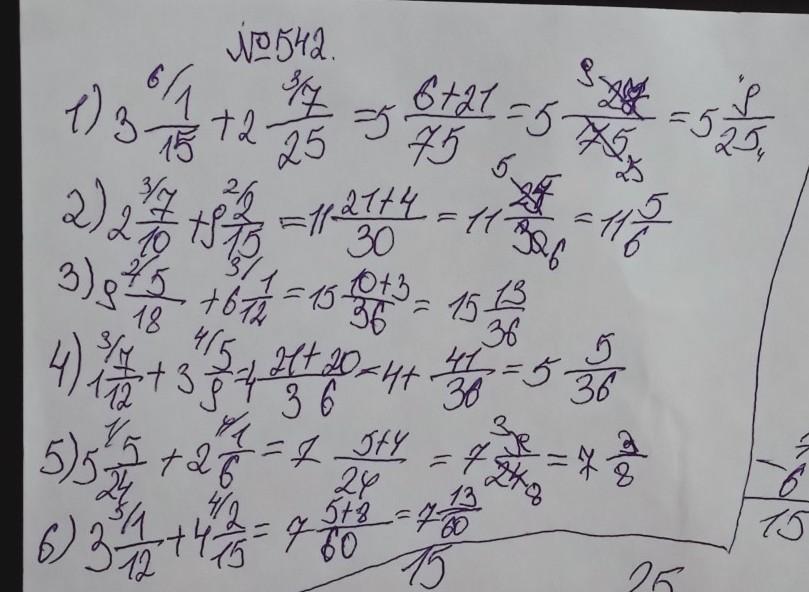 №542.
1) 3 6/1/15 + 2 3/7/25 = 5 6+21/75 = 5 27/75 = 5 9/25
2) 2 3/7/10 + 9 2/2/15 = 11 21+4/30 = 11 25/30 = 11 5/6
3) 9 2/5/18 + 6 3/1/12 = 15 10+3/36 = 15 13/36
4) 1 3/7/12 + 3 4/5/9 = 4 21+20/36 = 4+ 41/36 = 5 5/36
5) 5 1/5/24 + 2 4/1/6 = 7 5+4/24 = 7 9/24 = 7 3/8
6) 3 5/1/12 + 4 4/2/15 = 7 5+8/60 = 7 13/60
6
15
15 25